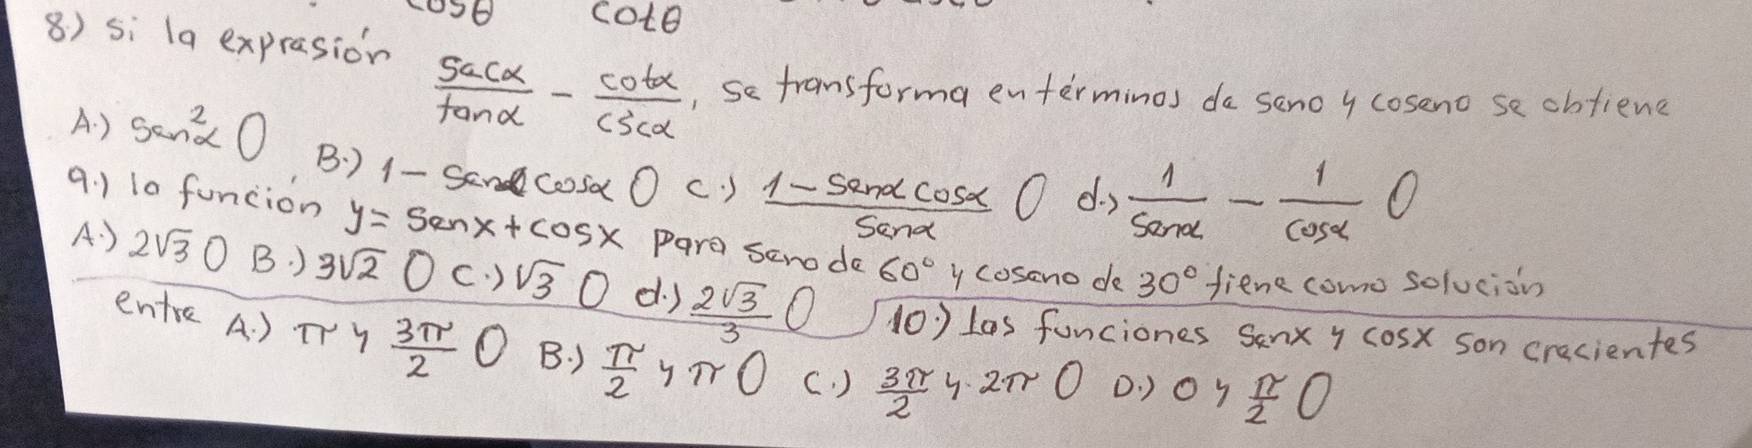 cosθ cotθ
8.) si la exprasión secα/tanα - cotα/cscα, se transforma en términos de seno y coseno se obtiene
A.) sen²α O B.) 1 - senα cosα O C.) (1 - senα cosα)/senα O d.) 1/senα - 1/cosα O
9.) la función y = senx + cosx para seno de 60° y coseno de 30° tiene como solución
A.) 2√3 O B.) 3√2 O C.) √3 O d.) 2√3/3 O 10.) las funciones senx y cosx son crecientes
entre A.) π y 3π/2 O B.) π/2 y π O C.) 3π/2 y 2π O D.) 0 y π/2 O